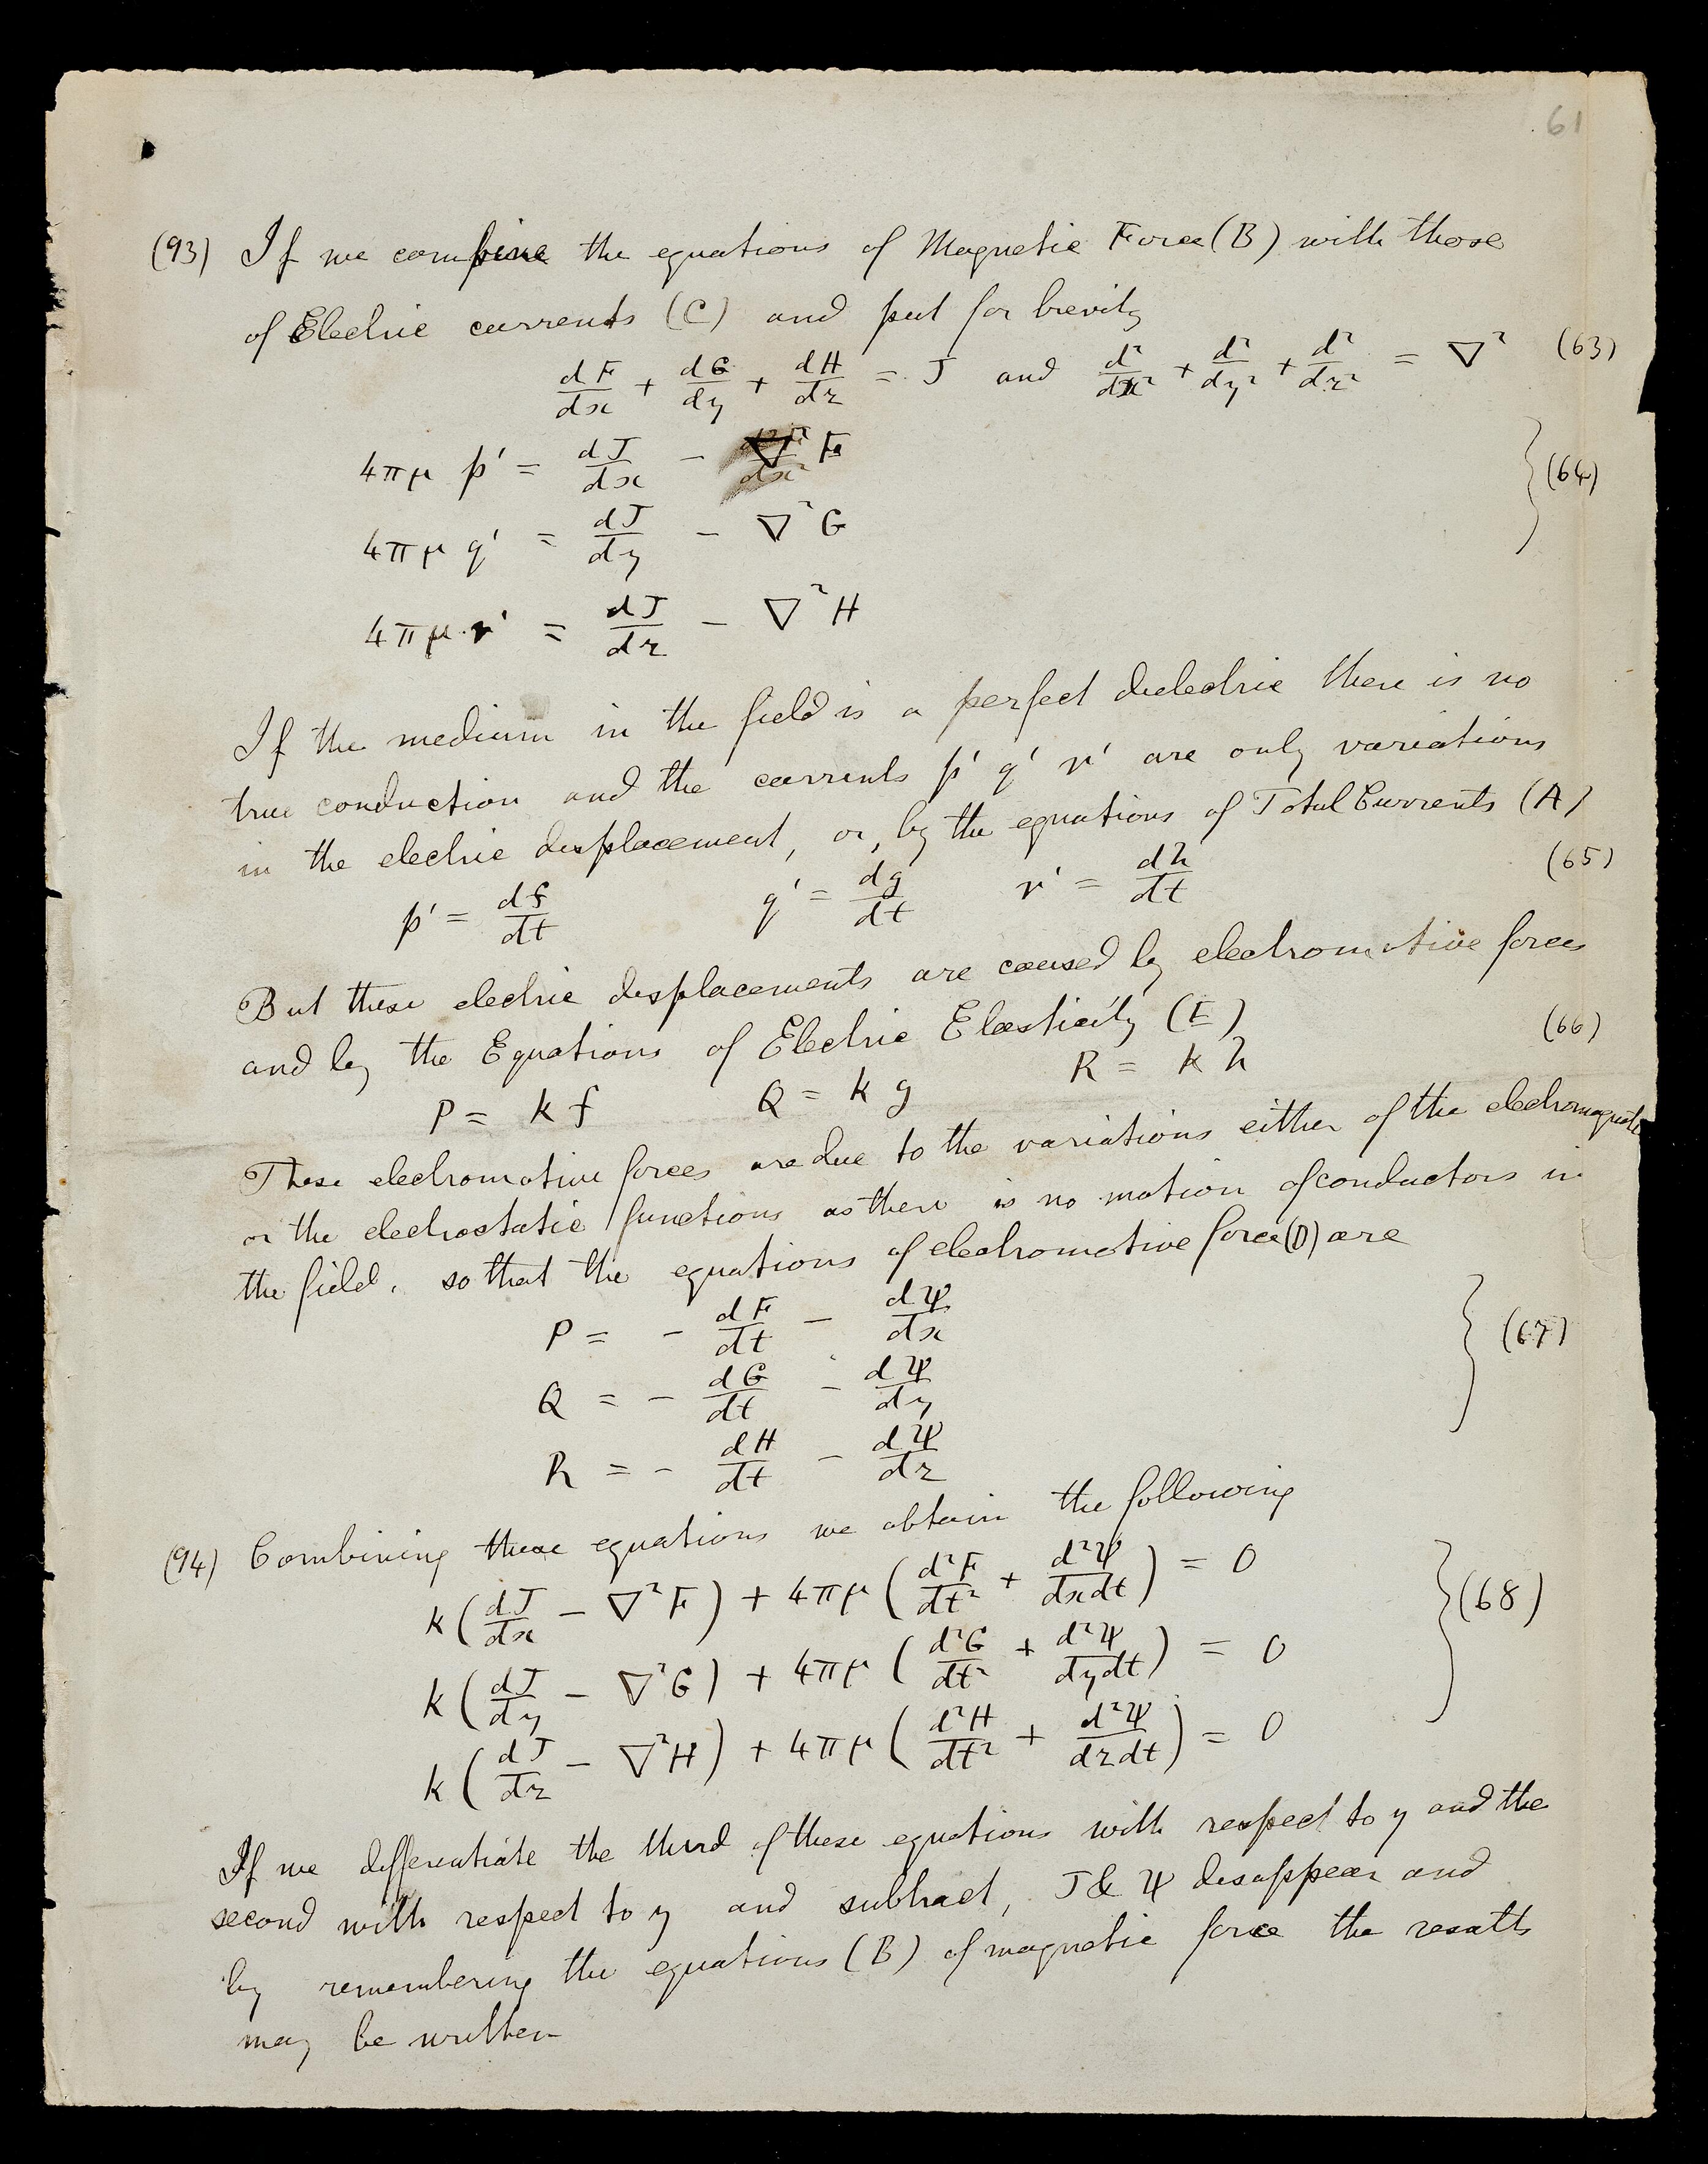 61
(93) If we combine the equations of Magnetic Force (B) with those
of Electric currents (C) and put for brevity
dF/dx + dG/dy + dH/dz = J and d²/dx² + d²/dy² + d²/dz² = ∇² (63)
4πμ p' = dJ/dx − ∇² F
4πμ q' = dJ/dy − ∇² G } (64)
4πμ r' = dJ/dz − ∇² H
If the medium in the field is a perfect dielectric there is no
true conduction and the currents p' q' r' are only variations
in the electric displacement, or, by the equations of Total Currents (A)
p' = df/dt q' = dg/dt r' = dh/dt (65)
But these electric displacements are caused by electromotive forces
and by the Equations of Electric Elasticity (E)
P = k f Q = k g R = k h (66)
These electromotive forces are due to the variations either of the electromagnetic
or the electrostatic functions as there is no motion of conductors in
the field, so that the equations of electromotive force (D) are
P = − dF/dt − dΨ/dx
Q = − dG/dt − dΨ/dy } (67)
R = − dH/dt − dΨ/dz
(94) Combining these equations we obtain the following
k (dJ/dx − ∇²F) + 4πμ (d²F/dt² + d²Ψ/dxdt) = 0
k (dJ/dy − ∇²G) + 4πμ (d²G/dt² + d²Ψ/dydt) = 0 } (68)
k (dJ/dz − ∇²H) + 4πμ (d²H/dt² + d²Ψ/dzdt) = 0
If we differentiate the third of these equations with respect to y and the
second with respect to y and subtract, J & Ψ disappear and
by remembering the equations (B) of magnetic force the results
may be written